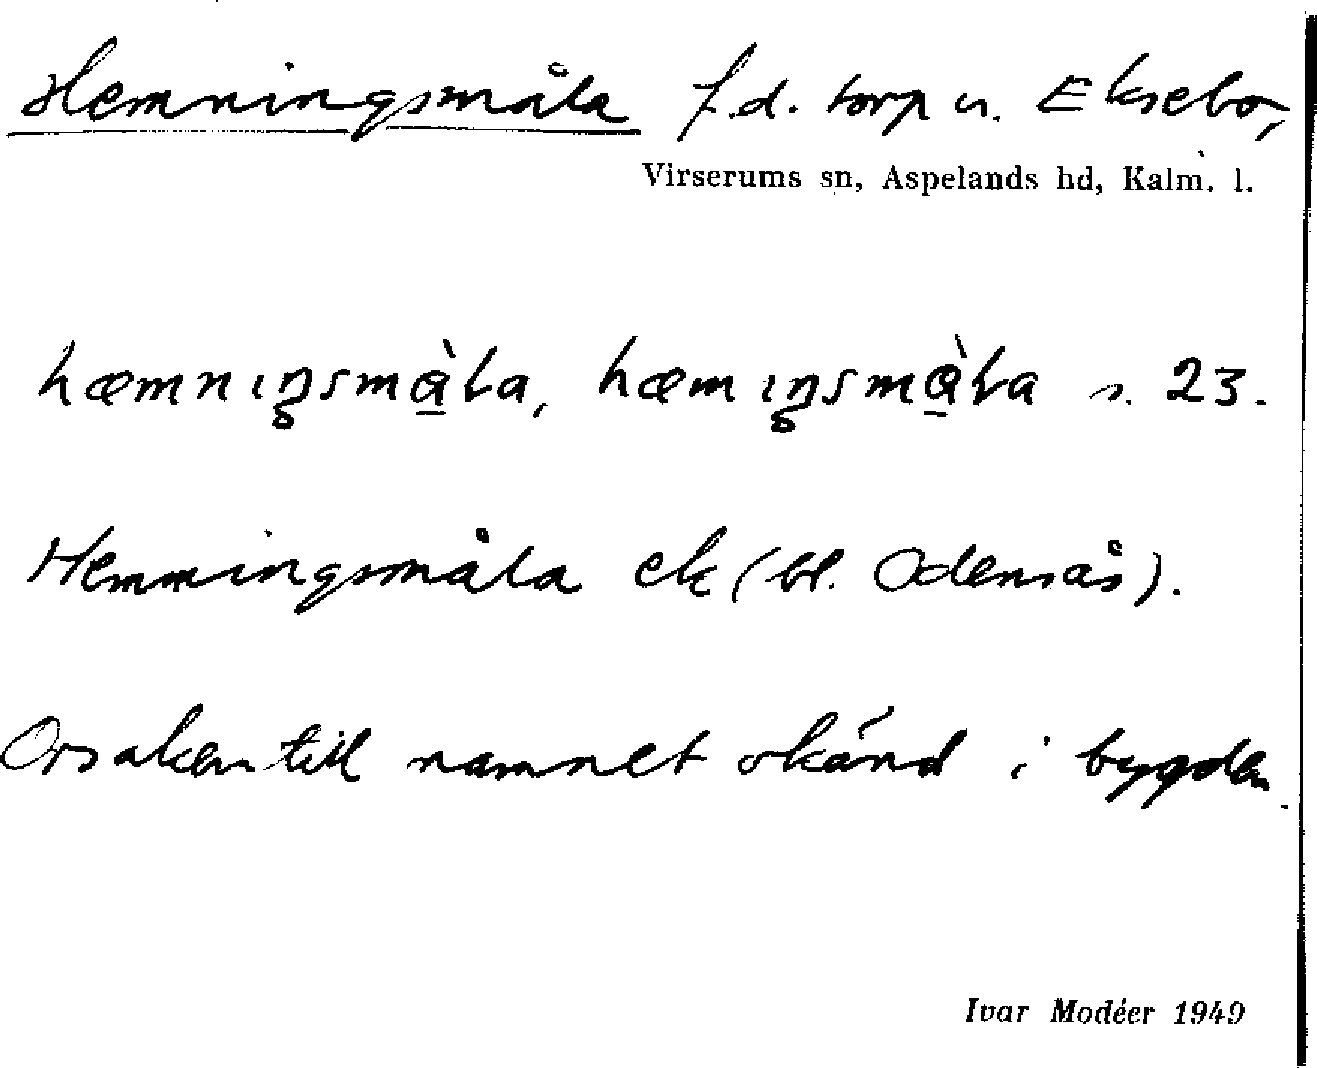 Hemningsmåla f.d. torp u. Eksebo,
Virserums sn, Aspelands hd, Kalm. l.
hæmnıŋsmɑ̱̀la, hæmıŋsmɑ̱̀la s. 23.
Hemmingsmåla ek (bl. Odensås).
Orsaken till namnet okänd i bygden.
Ivar Modéer 1949